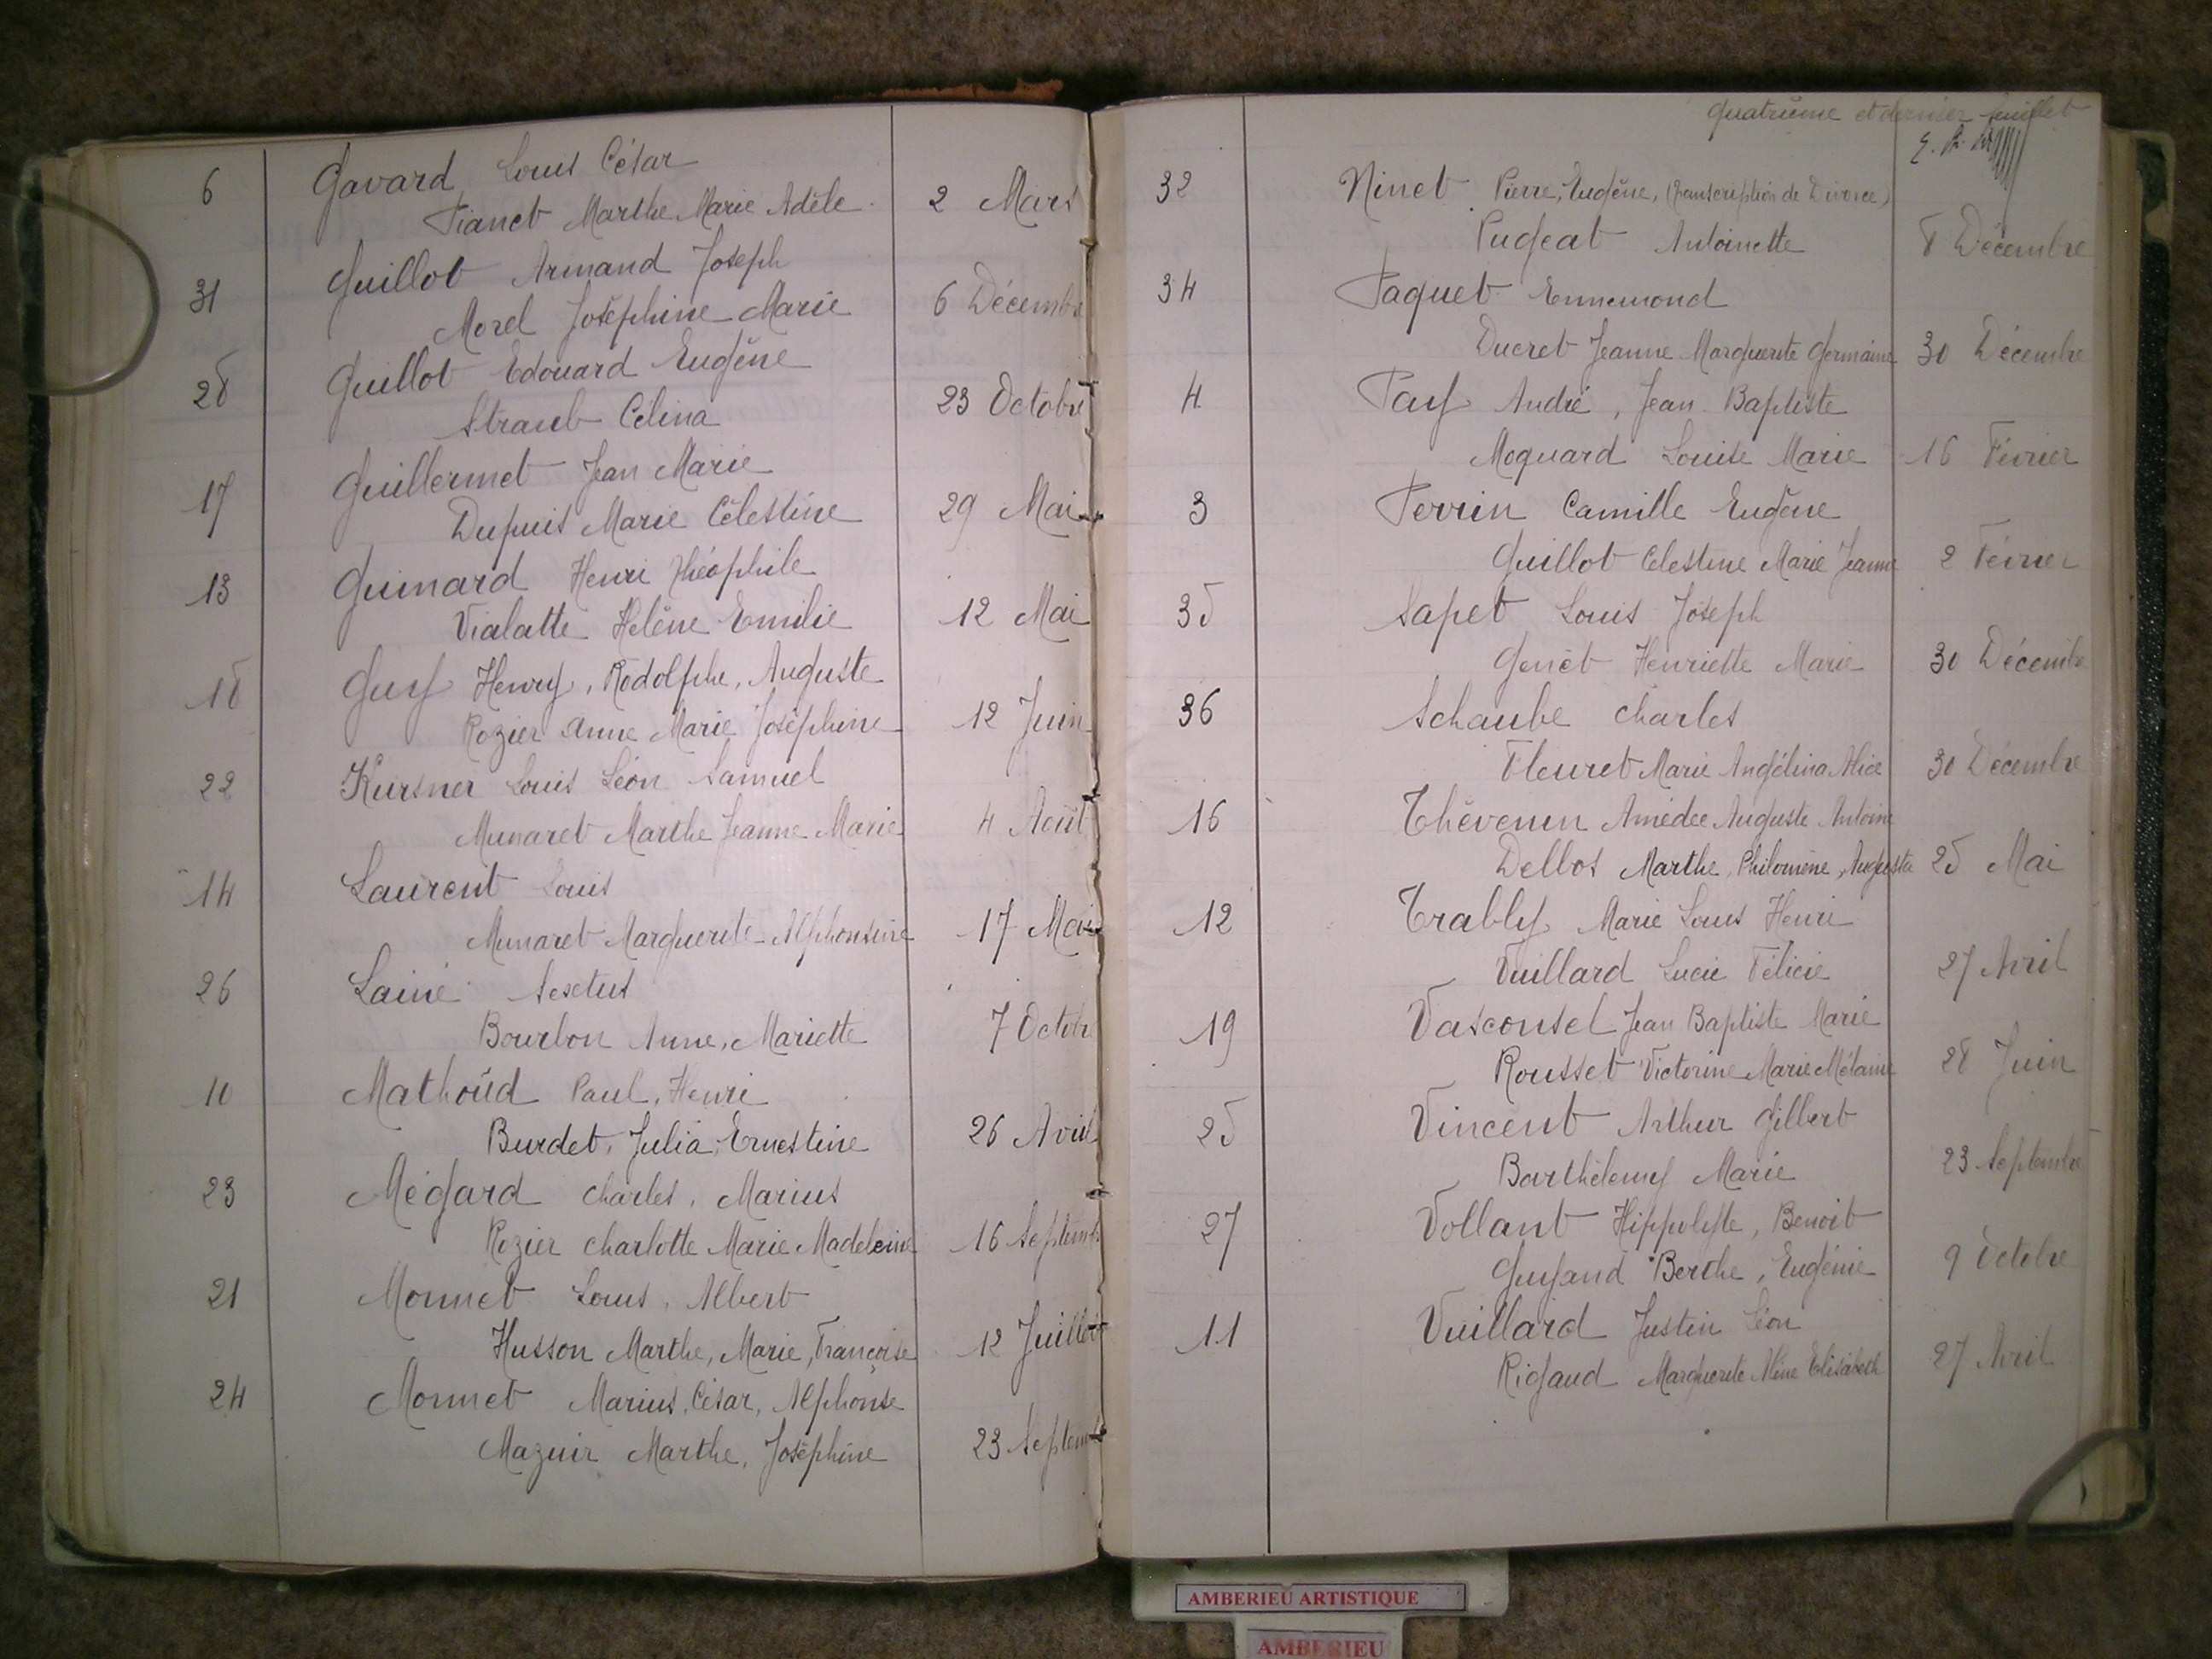 6 Gavard Louis César
Pianet Marthe Marie Adèle 2 Mars
Guillot Armand Joseph
31 Morel Joséphine Marie 6 Décembre
28 Guillot Edouard Eugène
Straub Célina 23 Octobre
17 Guillermet Jean Marie
Dupuis Marie Célestine 29 Mai
13 Guinard Henri Théophile
Vialatte Hélène Emilie 12 Mai
18 Guy Henry, Rodolphe, Auguste
Rozier Anne Marie Joséphine 12 Juin
22 Kursner Louis Léon Samuel
Munaret Marthe Jeanne Marie 4 Août
14 Laurent Louis
Munaret Marguerite Alphonsine 17 Mai
26 Lainé Sextus
Bourbon Anne, Mariette 7 Octobr
10 Mathoûd Paul, Henri
Burdet, Julia, Ernestine 26 Avril
23 Mégard Charles, Marius
Rozier Charlotte Marie Madeleine 16 Septemb
21 Monnet Louis, Albert
Husson Marthe, Marie, Françoise 12 Juillet
24 Monnet Marius, César, Alphonse
Mazuir Marthe, Joséphine 23 Septemb
quatrième et dernier feuillet
32 Ninet Pierre, Eugène, (transcription de Divorce)
Pugeat Antoinette 8 Décembre
34 Paquet Ennemond
Ducret Jeanne Marguerite Germaine 30 Décembre
4 Pay André, Jean Baptiste
Moquard Louise Marie 16 Février
3 Perrin Camille Eugène
Guillot Célestine Marie Jeanne 2 Février
35 Sapet Louis Joseph
Genèt Henriette Marie 30 Décembre
36 Schaube Charles
Fleuret Marie Angélina Alice 30 Décembre
16 Thévenin Amédée Auguste Antoine
Delbos Marthe, Philomène, Augusta 25 Mai
12 Trably Marie Louis Henri
Vuillard Lucie Félicie 27 Avril
19 Vasconsel Jean Baptiste Marie
Rousset Victorine Marie Mélanie 28 Juin
25 Vincent Arthur Gilbert
Barthélemy Marie 23 Septembre
27 Vollant Hippolyte, Benoit
Guyand Berthe, Eugénie 9 Octobre
11 Vuillard Justin Léon
Rigaud Marguerite Aline Elisabeth 27 Avril
AMBERIEU ARTISTIQUE
AMBERIEU